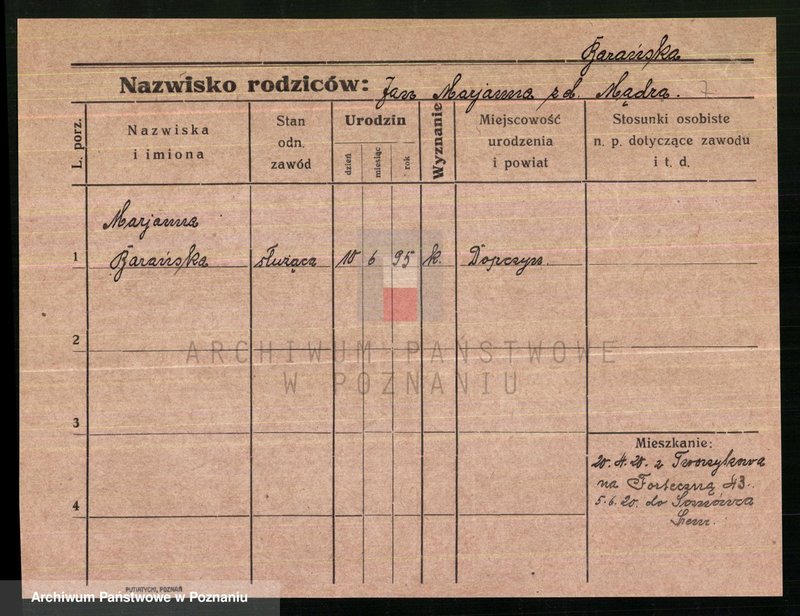 Barańska
Nazwisko rodziców: Jan Marjanna z d. Mądra. 7
L. porz.
Nazwiska
i imiona
Stan
odn.
zawód
Urodzin
dzień
miesiąc
rok
Wyznanie
Miejscowość
urodzenia
i powiat
Stosunki osobiste
n. p. dotyczące zawodu
i t. d.
Marjanna
1 Barańska służąca 10 6 95 k. Dopczyn.
2
ARCHIWUM PAŃSTWOWE
W POZNANIU
3
Mieszkanie:
20.4.20. z
na Forteczną 43.
4
5.6.20. do
PUTIATYCKI, POZNAŃ
Archiwum Państwowe w Poznaniu